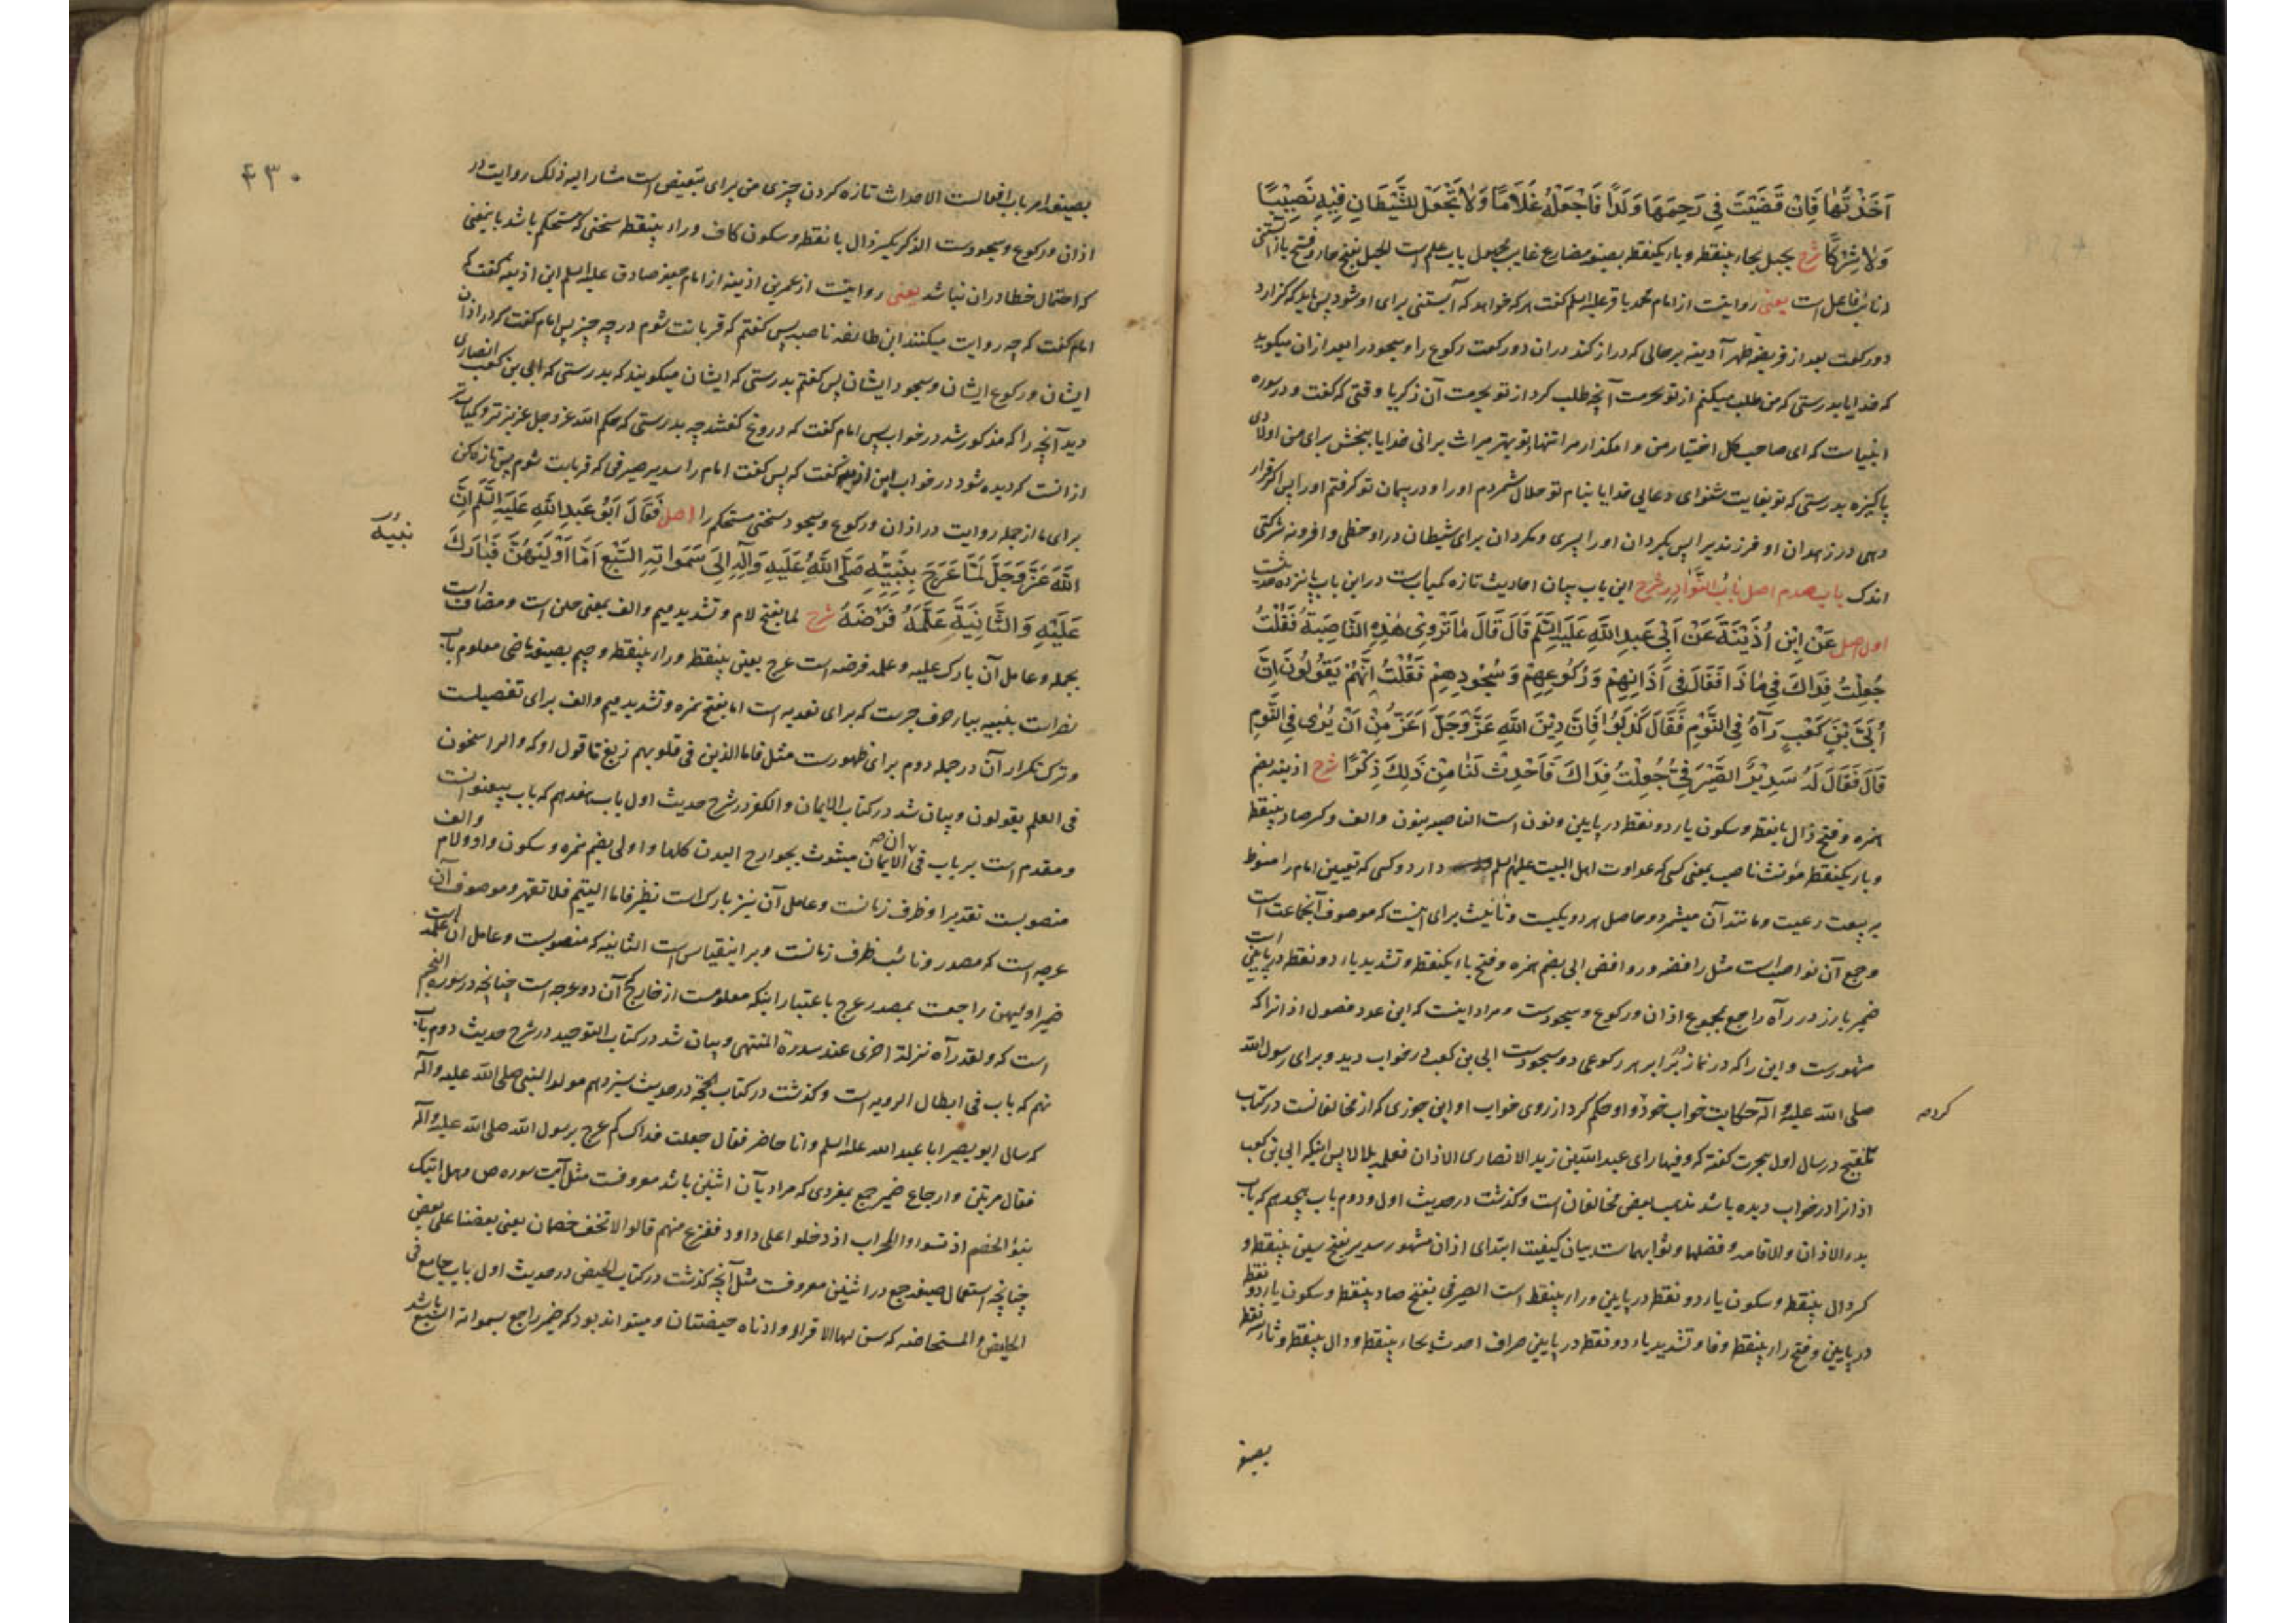 اَخَذْتُهَا فَاِنْ قَضَيْتَ فِي رَحِمِهَا وَلَدًا فَاجْعَلْهُ غُلَامًا وَلَا تَجْعَلْ لِلشَّيْطَانِ فِيْهِ نَصِيْبًا
وَلَا شِرْكًا شرح يحبل بحاء بینقطه و باء یکنقطه بصیغه مضارع غایب مجهول باب علم است الحبل بفتح حا و فتح با آبستنی
نائب فاعل است یعنی روایتست از امام محمد باقر علیه السلم گفت هر که خواهد که آبستنی برای او شود پس باید که گزارد
دو رکعت بعد از فریضه ظهر آدینه بر حالی که دراز کند در ان دو رکعت رکوع را و سجود را بعد از ان میگوید
که خدایا بدرستی که من طلب میکنم از تو بحرمت آنچه طلب کرد از تو بحرمت آن زکریا وقتی که گفت و در سوره
انبیاست که ای صاحب کل اختیار من وا مگذار مرا تنها و تو بهتر میراث برانی خدایا ببخش برای من اولادی
پاکیزه بدرستی که تو بغایت شنوای دعایی خدایا بنام تو حلال شمردم او را و در پیمان تو گرفتم او را پس اگر قرار
دهی در زهدان او فرزندیرا پس بگردان او را پسری و مگردان برای شیطان در او حظی و افرونه شرکتی
اندک باب صدم اصل بَابُ النَّوَادِرِ شرح این باب بیان احادیث تازه کمیابست در این باب پانزده حدیثست
اول اصل عَنْ اِبْنِ اُذَيْنَةَ عَنْ اَبِي عَبْدِ اللّٰهِ عَلَيْهِ السَّلَمُ قَالَ قَالَ مَا تَرْوِيْ هٰذِهِ النَّاصِبَةُ فَقُلْتُ
جُعِلْتُ فِدَاكَ فِي مَاذَا فَقَالَ فِي اَذَانِهِمْ وَرُكُوعِهِمْ وَسُجُودِهِمْ فَقُلْتُ اِنَّهُمْ يَقُوْلُونَ اِنَّ
اُبَيَّ بْنَ كَعْبٍ رَآهُ فِي النَّوْمِ فَقَالَ كَذَبُوْا فَاِنَّ دِيْنَ اللّٰهِ عَزَّ وَجَلَّ اَعَزُّ مِنْ اَنْ يُرٰى فِي النَّوْمِ
قَالَ فَقَالَ لَهُ سَدِيْرٌ الصَّيْرَفِيُّ جُعِلْتُ فِدَاكَ فَاَحْدِثْ لَنَا مِنْ ذٰلِكَ ذِكْرًا شرح اذینه بضم
همزه و فتح ذال بانقطه و سکون یاء دو نقطه در پایین و نون است الناصبه بنون و الف و کسر صاد بینقطه
و باء یکنقطه مؤنث ناصب یعنی کسی که عداوت اهل البیت علیهم السلم دارد و کسی که تعیین امام را منوط
بر بیعت رعیت و مانند آن میشمرد و حاصل هر دو یکیست و تأنیث برای اینست که موصوف آن جماعت است
و جمع آن نواصب است مثل رافضه و روافض ابی بضم همزه و فتح باء یکنقطه و تشدید یاء دو نقطه در پایین است
ضمیر بارز در رآه راجع بمجموع اذان و رکوع و سجودست و مراد اینست که این عدد فصول اذانرا که
مشهورست و این را که در نماز در برابر هر رکوعی دو سجودست ابی بن کعب در خواب دید و برای رسول الله
صلی الله علیه و آله حکایت خواب خود و او حکم کرد از روی خواب او ابن جوزی که از مخالفانست در کتاب
کرده
تلقیح در سال اول هجرت گفته که و فیها رای عبد الله بن زید الانصاری الاذان فعلمه بلالا پس اینکه ابی بن کعب
اذانرا در خواب دیده باشد مذهب بعض مخالفان است و گذشت در حدیث اول و دوم باب هجدهم که باب
بدء الاذان و الاقامه و فضلهما و ثوابهما ست بیان کیفیت ابتدای اذان مشهور سدیر بفتح سین بینقطه و
کسر دال بینقطه و سکون یاء دو نقطه در پایین و راء بینقطه است الصیرفی بفتح صاد بینقطه و سکون یاء دو نقطه
در پایین و فتح راء بینقطه و فا و تشدید یاء دو نقطه در پایین صراف احدث بحاء بینقطه و دال بینقطه و ثاء سه نقطه
بصیغه
۴۳۰
بصیغه امر باب افعالست الاحداث تازه کردن چیزی من برای تبعیض است مشار الیه ذلک روایت در
اذان و رکوع و سجودست الذکر بکسر ذال بانقطه و سکون کاف و راء بینقطه سخنی که مستحکم باشد باینمعنی
که احتمال خطا در ان نباشد یعنی روایتست از عمر بن اذینه از امام جعفر صادق علیه السلم ابن اذینه گفت که
امام گفت که چه روایت میکنند این طائفه ناصبه پس گفتم که قربانت شوم در چه چیز پس امام گفت که در اذان
ایشان و رکوع ایشان و سجود ایشان پس گفتم بدرستی که ایشان میگویند که بدرستی که ابی بن کعب انصاری
دید آنچه را که مذکور شد در خواب پس امام گفت که دروغ گفتند چه بدرستی که حکم الله عز و جل عزیزتر و کمیاب تر
از انست که دیده شود در خواب ابن اذینه گفت که پس گفت امام را سدیر صیرفی که قربانت شوم پس تازه کن
برای ما از جمله روایت در اذان و رکوع و سجود سخنی مستحکم را اصل فَقَالَ اَبُو عَبْدِ اللّٰهِ عَلَيْهِ السَّلَمُ اِنَّ
اللّٰهَ عَزَّ وَجَلَّ لَمَّا عَرَجَ بِنَبِيِّهِ صَلَّى اللّٰهُ عَلَيْهِ وَآلِهِ اِلَى سَمَوَاتِهِ السَّبْعِ اَمَّا اُوْلَيهُنَّ فَبَارَكَ
عَلَيْهِ وَالثَّانِيَةَ عَلَّمَهُ فَرْضَهُ شرح لما بفتح لام و تشدید میم و الف بمعنی حین است و مضافست
بجمله و عامل آن بارک علیه و علمه فرضه است عرج بعین بینقطه و راء بینقطه و جیم بصیغه ماضی معلوم باب
نصر است بنبیه بباء حرف جرست که برای تعدیه است اما بفتح همزه و تشدید میم و الف برای تفصیلست
و ترک تکرار آن در جمله دوم برای ظهورست مثل فاما الذین فی قلوبهم زیغ تا قول او که و الراسخون
فی العلم یقولون و بیان شد در کتاب الایمان و الکفر در شرح حدیث اول باب هفدهم که باب بیعنوانست
و مقدم است بر باب فی ان الایمان مبثوث بجوارح البدن کلها و اولی بضم همزه و سکون واو و لام و الف
منصوبست تقدیرا و ظرف زمانست و عامل آن نیز بارک است نظیر فاما الیتیم فلا تقهر و موصوف آن
عرجه است که مصدر و نائب ظرف زمانست و بر اینقیاس است الثانیه که منصوبست و عامل ان علمه است
ضمیر اولیهن راجعست بمصدر عرج باعتبار اینکه معلومست از خارج که آن دو عرجه است چنانچه در سوره النجم
است که و لقد رآه نزلة اخری عند سدرة المنتهی و بیان شد در کتاب التوحید در شرح حدیث دوم باب
نهم که باب فی ابطال الرویه است و گذشت در کتاب الحجة در حدیث سیزدهم مولد النبی صلی الله علیه و آله
که سال ابو بصیر ابا عبد الله علیه السلم و انا حاضر فقال جعلت فداک کم عرج برسول الله صلی الله علیه و آله
فقال مرتین و ارجاع ضمیر جمع بمفردی که مراد بآن اثنین باشد معروفست مثل آیت سوره ص و هل اتیک
نبؤ الخصم اذ تسوروا المحراب اذ دخلوا علی داود ففزع منهم قالوا لا تخف خصمان بغی بعضنا علی بعض
چنانچه استعمال صیغه جمع در اثنین معروفست مثل آنچه گذشت در کتاب الحیض در حدیث اول باب جامع فی
الحایض و المستحاضه که سن لها الاقراء و ادناه حیضتان و میتواند بود که ضمیر راجع بسمواته السبع باشد
نبیه